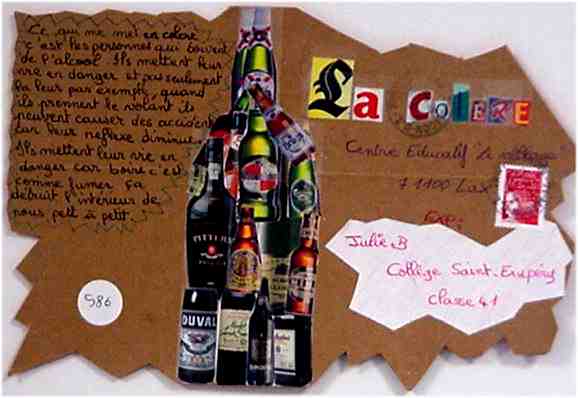 Ce qui me met en colère
c'est les personnes qui boivent
de l'alcool. Ils mettent leur
vie en danger et pas seulement
la leur par exemple, quand
ils prennent le volant ils
peuvent causer des accidents
car leur reflexe diminue.
Ils mettent leur vie en
danger car boire c'est
comme fumer ça
détruit l'intérieur de
nous petit à petit.
586
PITTERS
DUVAL
La COLERE
Centre Educatif
71100
Exp:
Julie B
Collège Saint-Exupéry
Classe 41